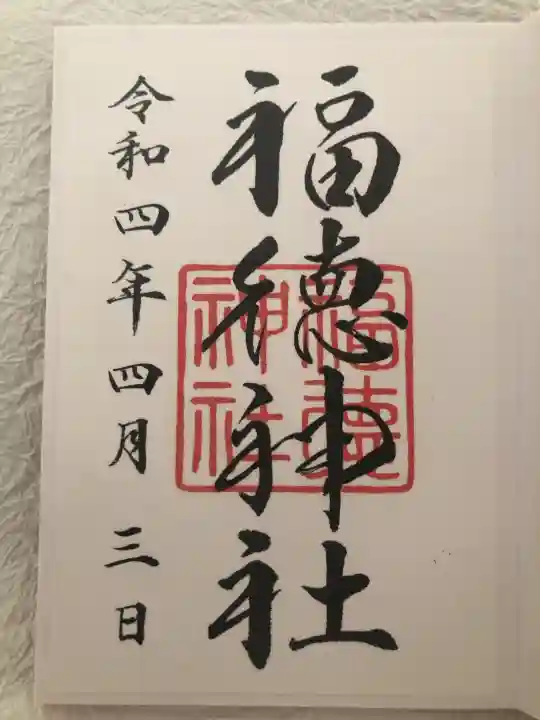 福德神社
福徳神社
令和四年四月三日